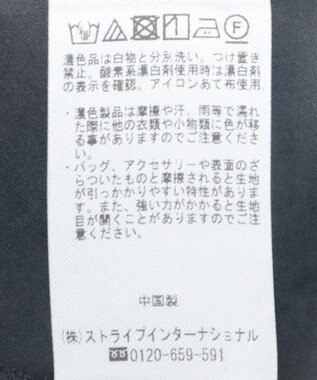 濃色品は白物と分別洗い。つけ置き
禁止。酸素系漂白剤使用時は漂白剤
の表示を確認。アイロンあて布使用
・濃色製品は摩擦や汗、雨等で濡れ
た際に他の衣類や小物類に色が移
る事がありますのでご注意くださ
い。
・バッグ、アクセサリーや表面のざ
らついたものと摩擦されると生地
が引っかかりやすい特性がありま
す。また、強い力がかかると生地
目が開くことがありますのでご注
意ください。
中国製
(株)ストライプインターナショナル
0120-659-591